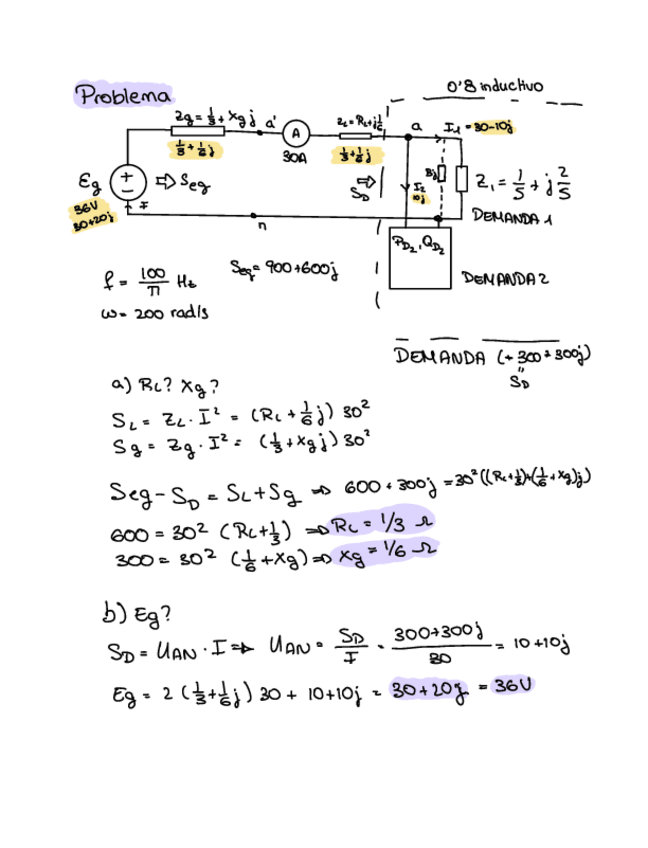 Problema
0'8 inductivo
Zg = 1/3 + Xg j
a'
A
30A
ZL = RL + j 1/6
a
I1 = 30-10j
1/3 + 1/6 j
1/3 + 1/6 j
Eg
+
-
36V
30+20j
I
⇨ Seg
⇨
SD
I2
10j
Z1 = 1/5 + j 2/5
DEMANDA 1
n
PD2, QD2
DEMANDA 2
f = 100/π Hz
Seg = 900+600j
ω = 200 rad/s
DEMANDA (+ 300+300j)
"
SD
a) RL? Xg?
SL = ZL · I² = (RL + 1/6 j) 30²
Sg = Zg · I² = (1/3 + Xg j) 30²
Seg - SD = SL + Sg ⇒ 600 + 300j = 30² ((RL + 1/3) + (1/6 + Xg) j)
600 = 30² (RL + 1/3) ⇒ RL = 1/3 Ω
300 = 30² (1/6 + Xg) ⇒ Xg = 1/6 Ω
b) Eg?
SD = UAN · I ⇒ UAN = SD/I = 300+300j/30 = 10+10j
Eg = 2 (1/3 + 1/6 j) 30 + 10+10j = 30+20j = 36V